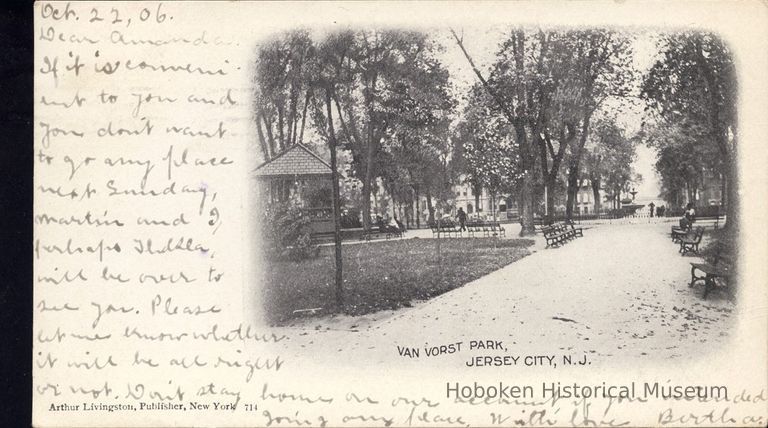 Oct. 22, 06.
Dear Amanda.
If it is conveni-
ent to you and
you don't want
to go any place
next Sunday,
Martin and I,
perhaps Tldlla,
will be over to
see you. Please
let me know whether
it will be all right
or not. Don't stay home on our account if you intended
going any place. With love Bertha.
VAN VORST PARK,
JERSEY CITY, N.J.
Arthur Livingston, Publisher, New York 714
Hoboken Historical Museum